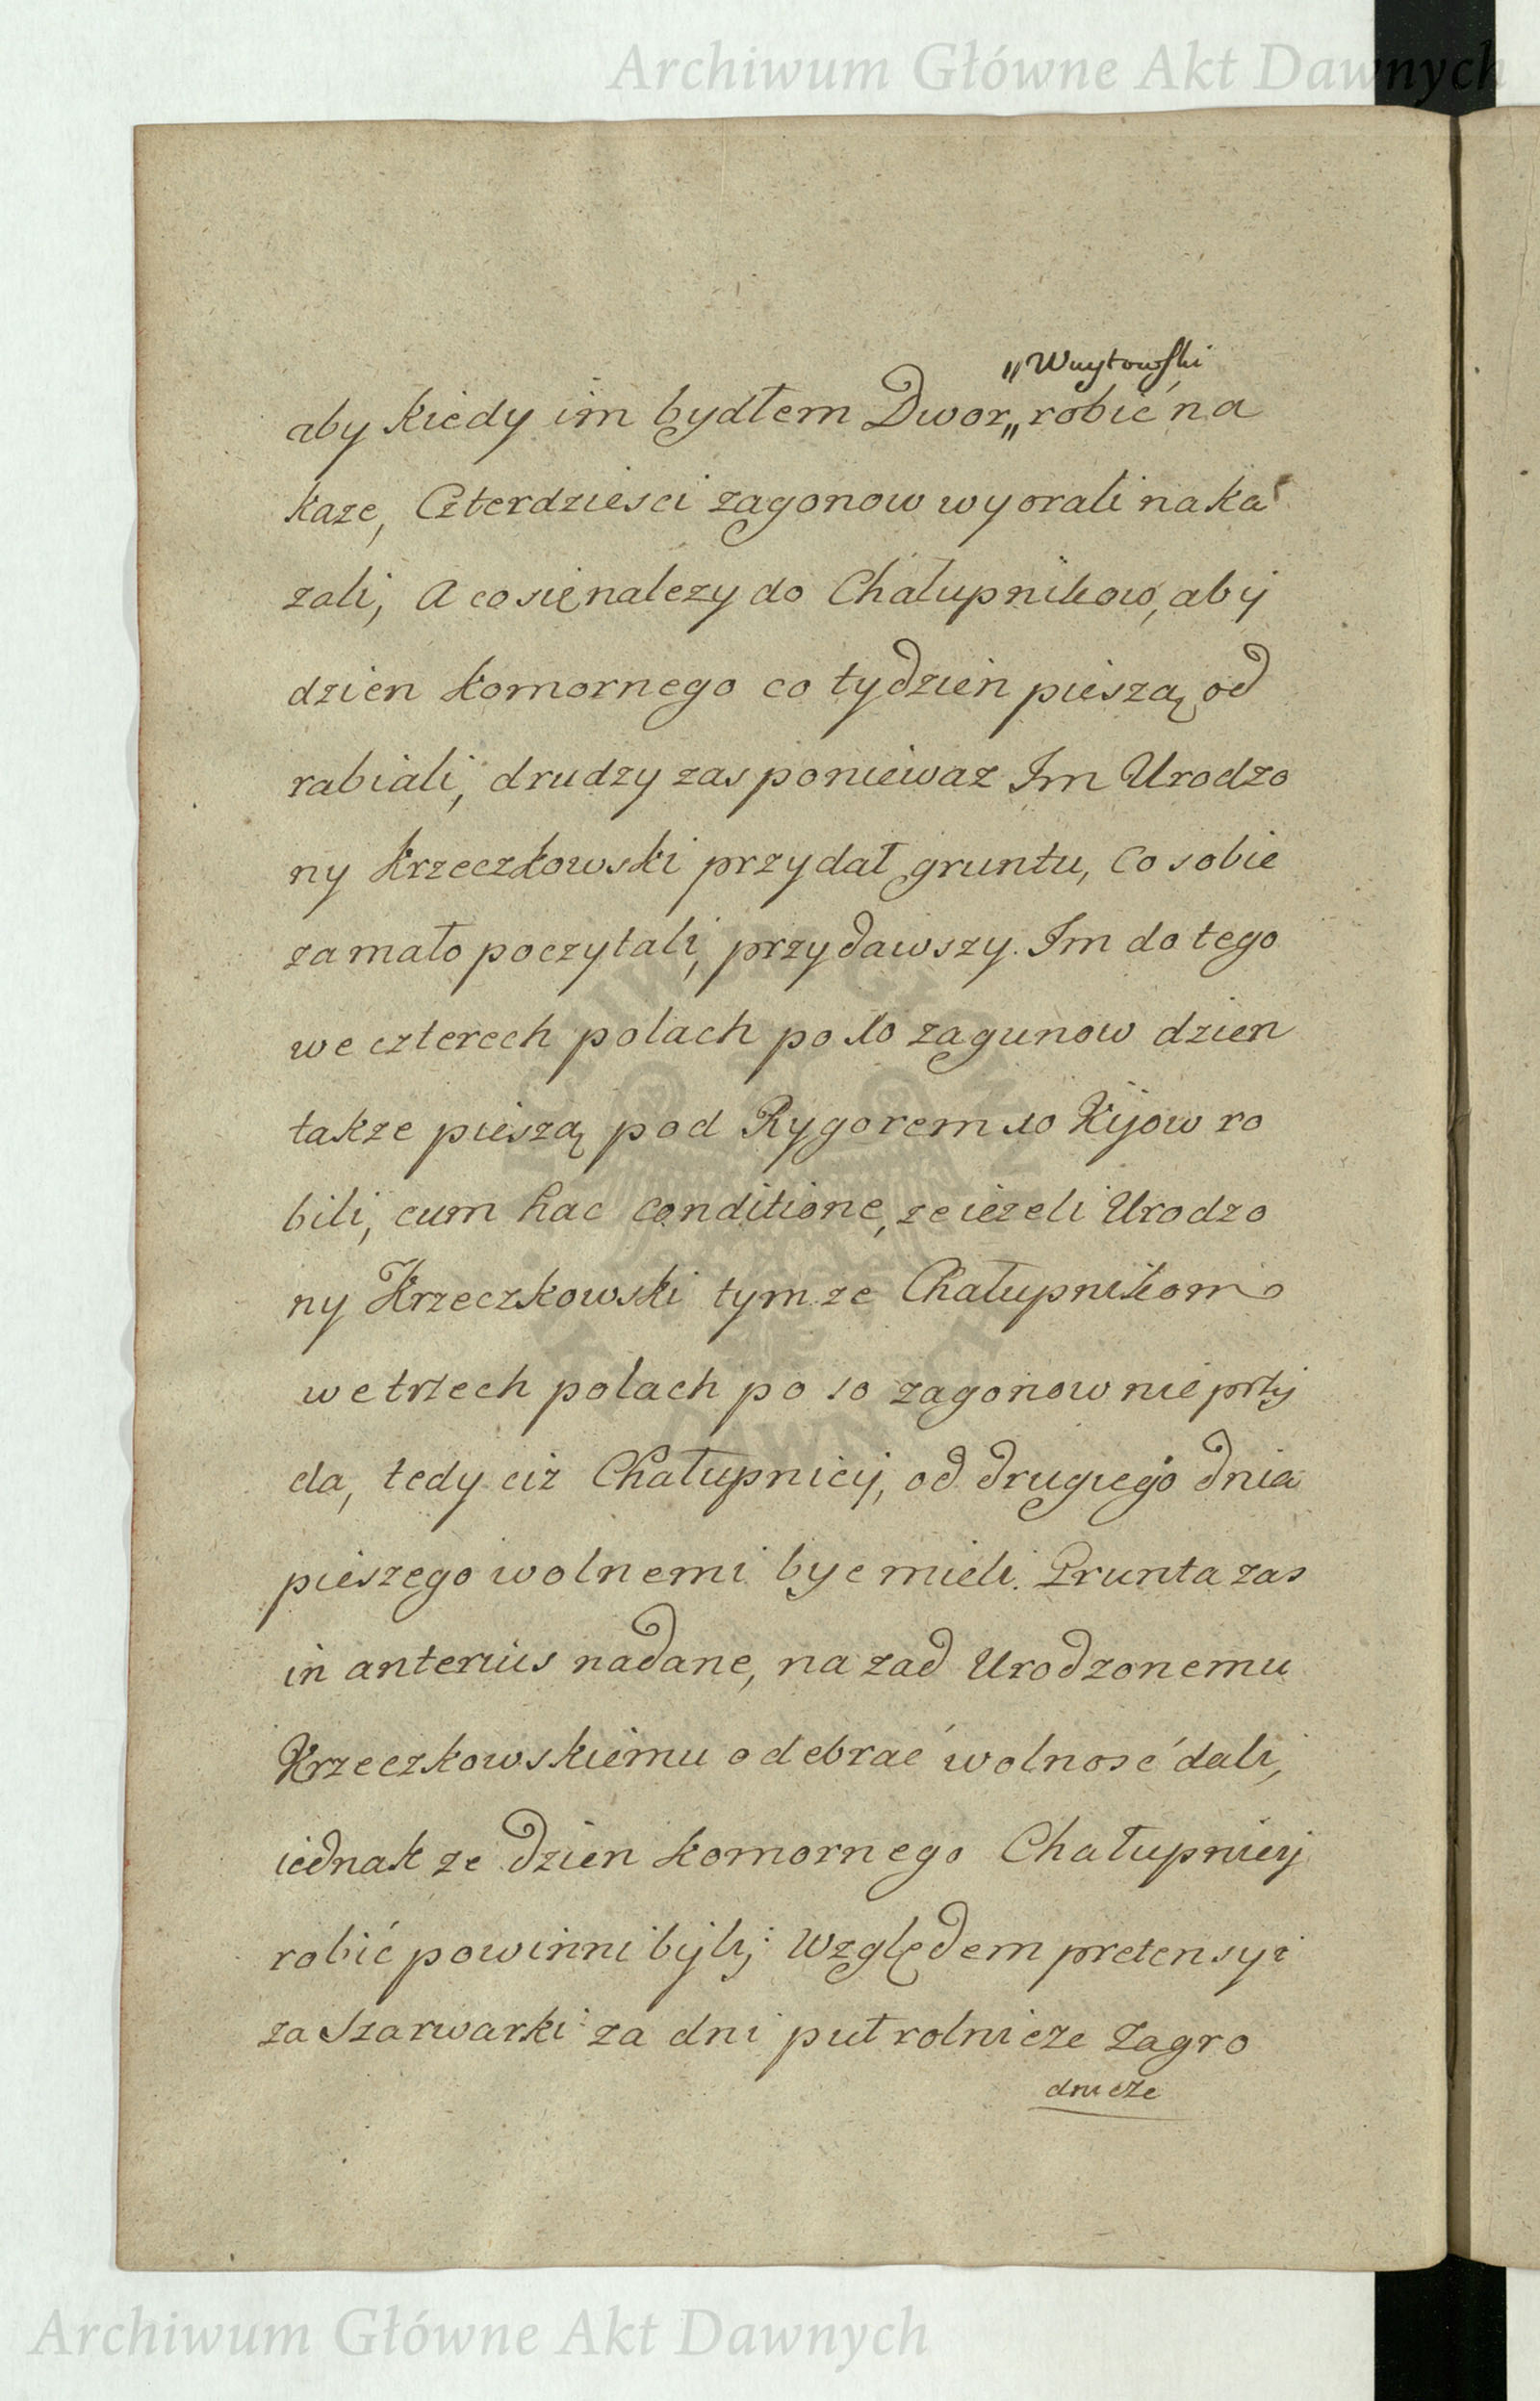 Archiwum Główne Akt Dawnych
„Wuytowski
aby kiedy im bydłem Dwor„ robić na
kaze, Czterdziesci zagonow wyorali naka
zali, A co się nalezy do Chałupnikow, abÿ
dzien komornego co tydzien pieszą od
rabiali, drudzy zas poniewaz Im Urodzo
ny Krzeczkowski przydał gruntu, Co sobie
za mało poczytali, przydawszy Im do tego
we czterech polach po 10 zagunow dzien
takze pieszą pod Rygorem 10 Kijow ro
bili, cum hac conditione, ze iezeli Urodzo
ny Krzeczkowski tym ze Chałupnikom
we trzech polach po 10 zagonow nie przÿ
da, tedy ciz Chałupnicÿ, od drugiego dnia
pieszego wolnemi byc mieli. Grunta zas
in anterius nadane, na zad Urodzonemu
Krzeczkowskiemu odebrać wolność dali,
iednak ze dzien komornego Chałupnicÿ
robić powinni bÿli; Względem pretensyi
za Szarwarki za dni puł rolnicze Zagro
dnicze
Archiwum Główne Akt Dawnych